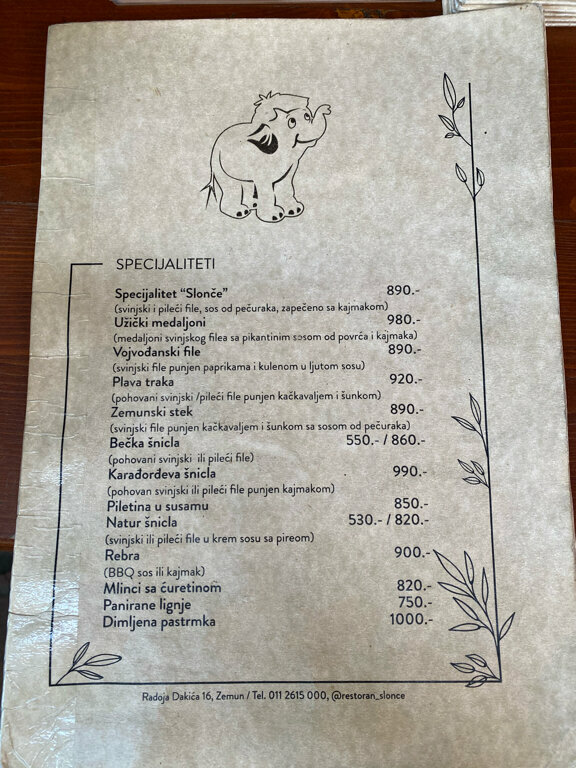 SPECIJALITETI
Specijalitet "Slonče" 890.-
(svinjski i pileći file, sos od pečuraka, zapečeno sa kajmakom)
Užički medaljoni 980.-
(medaljoni svinjskog filea sa pikantinim sosom od povrća i kajmaka)
Vojvođanski file 890.-
(svinjski file punjen paprikama i kulenom u ljutom sosu)
Plava traka 920.-
(pohovani svinjski /pileći file punjen kačkavaljem i šunkom)
Zemunski stek 890.-
(svinjski file punjen kačkavaljem i šunkom sa sosom od pečuraka)
Bečka šnicla 550.- / 860.-
(pohovani svinjski ili pileći file)
Karađorđeva šnicla 990.-
(pohovan svinjski ili pileći file punjen kajmakom)
Piletina u susamu 850.-
Natur šnicla 530.- / 820.-
(svinjski ili pileći file u krem sosu sa pireom)
Rebra 900.-
(BBQ sos ili kajmak)
Mlinci sa ćuretinom 820.-
Panirane lignje 750.-
Dimljena pastrmka 1000.-
Radoja Dakića 16, Zemun / Tel. 011 2615 000, @restoran_slonce